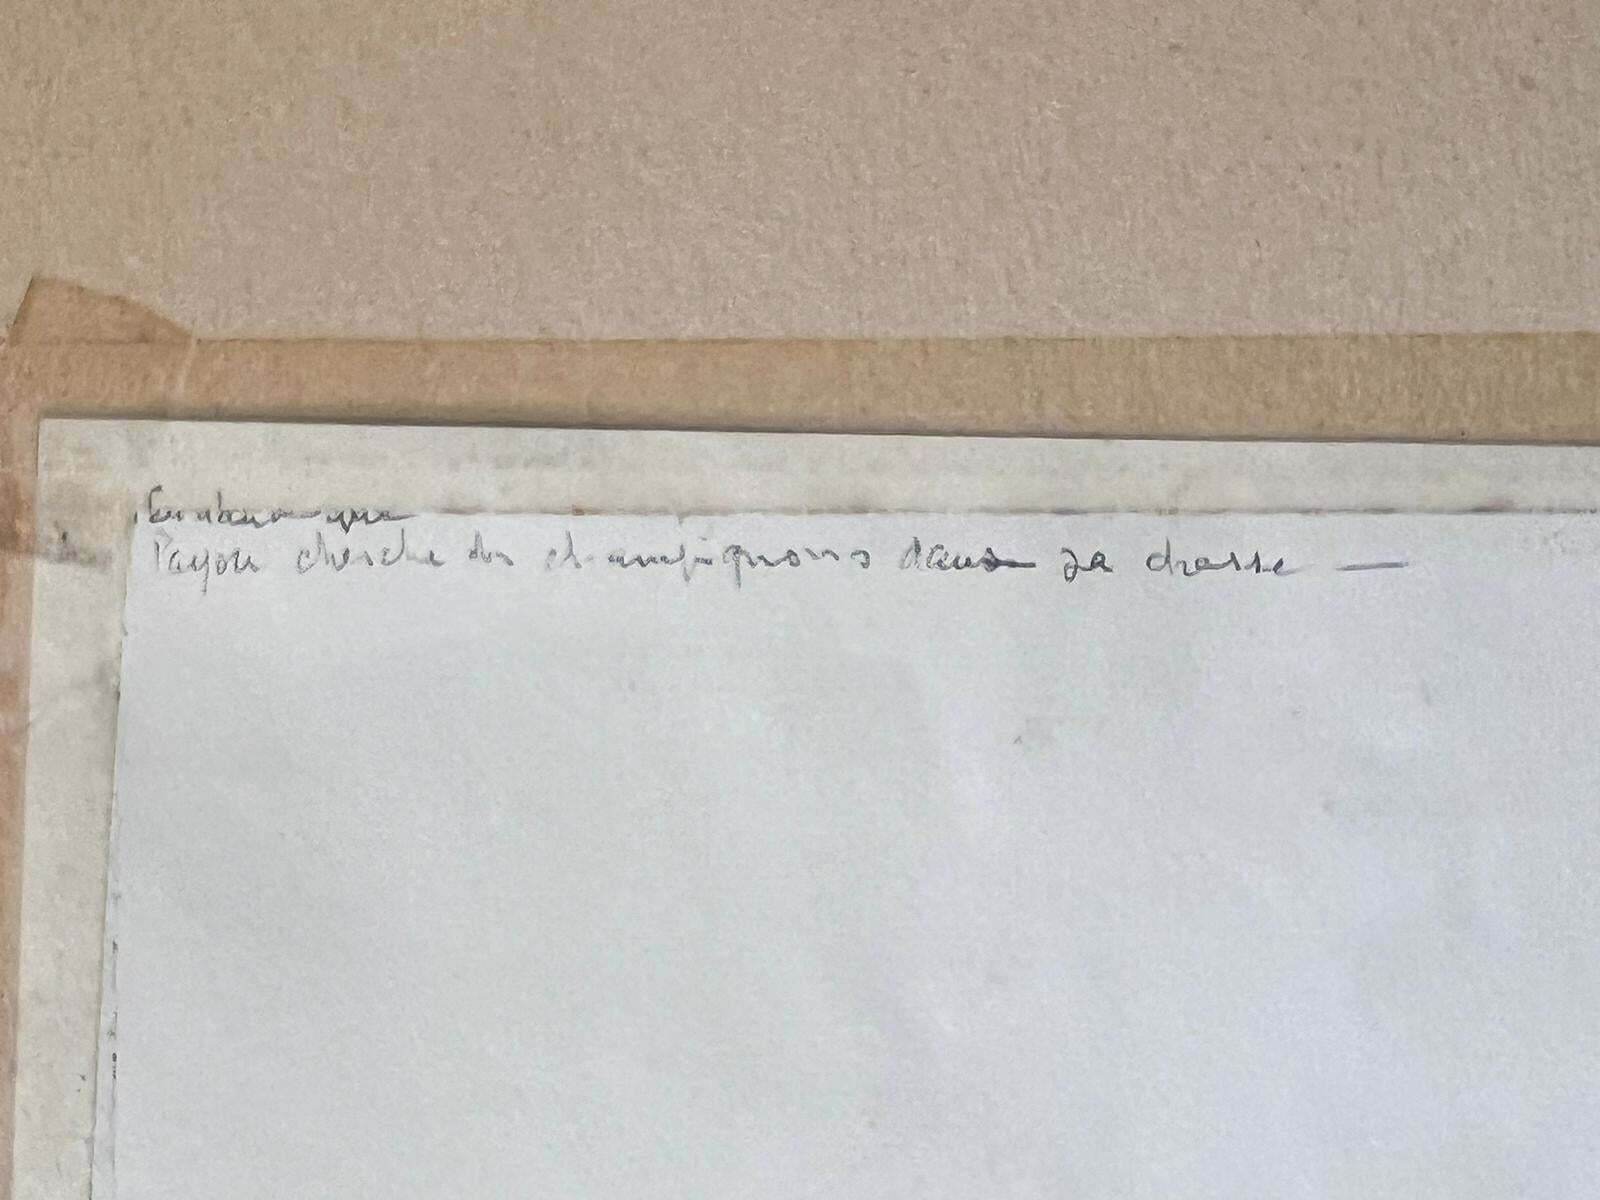 cherche des champignons dans sa chasse —